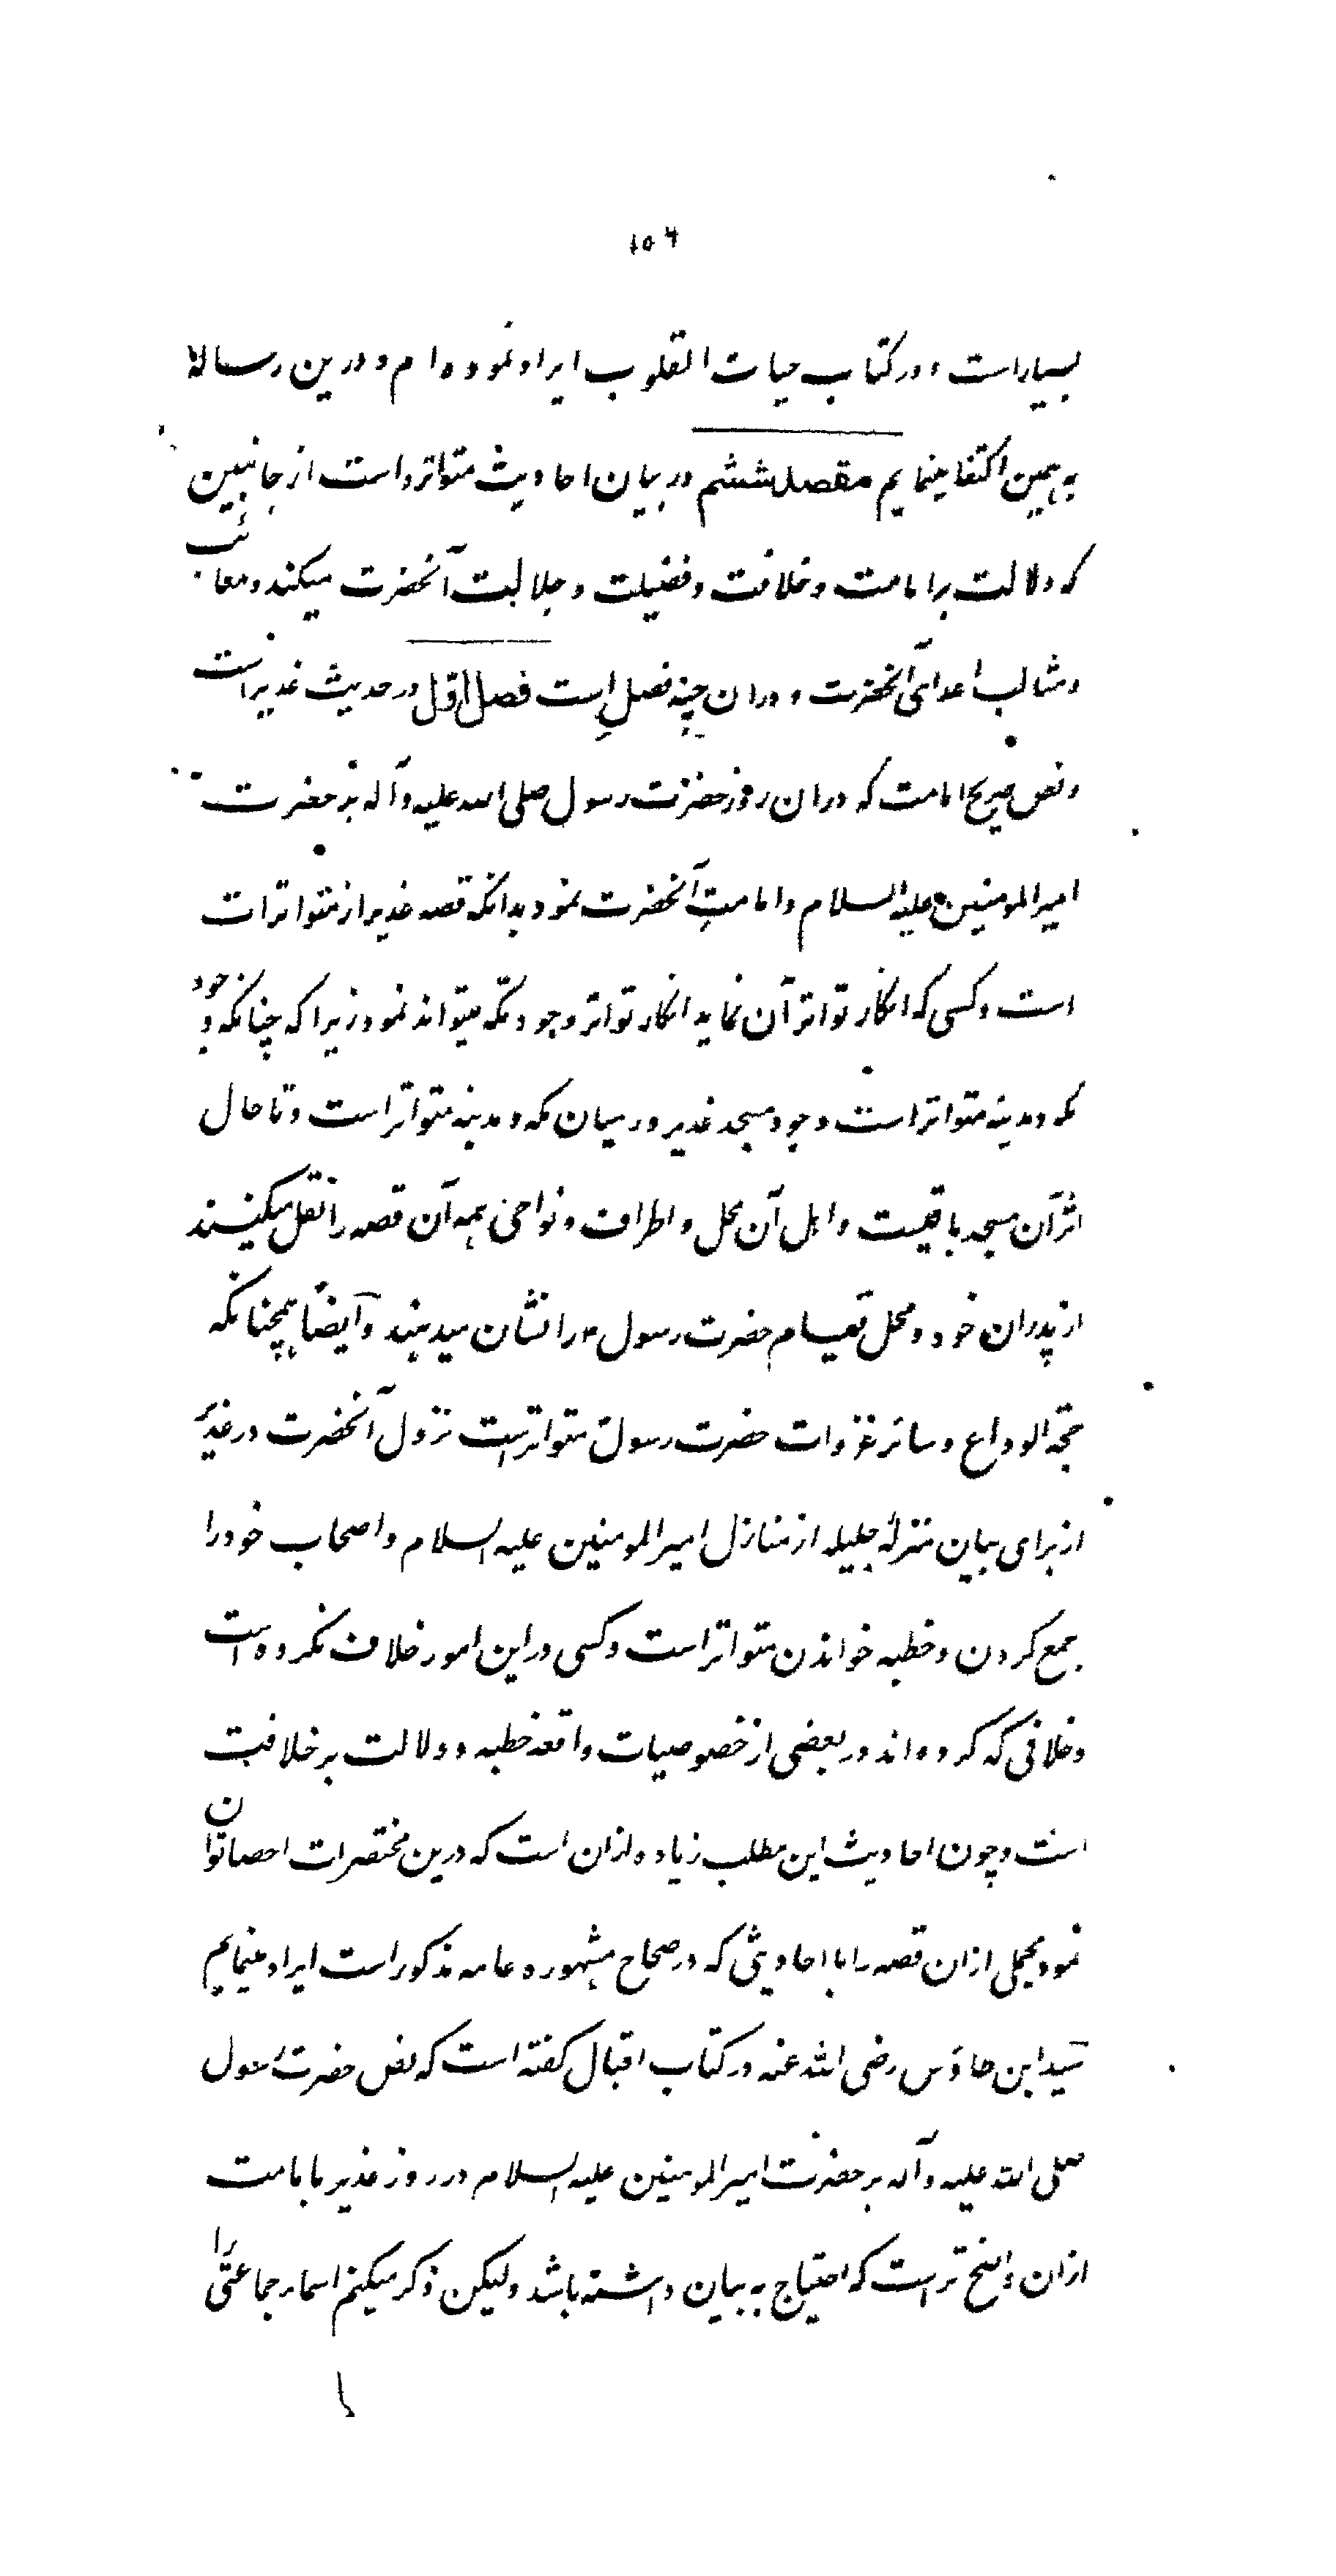 ۱۵۶
بسیار است و در کتاب حیات القلوب ایراد نموده ام و درین رساله
به همین اکتفا مینمایم مقصد ششم در بیان احادیث متواتره است از جانبین
که دلالت بر امامت و خلافت و فضیلت و جلالت آنحضرت میکند و معائب
و مثالب اعدای آنحضرت و دران چند فصل است فصل اول در حدیث غدیر است
و نص صریح امامت که دران روز حضرت رسول صلی الله علیه و آله بر حضرت
امیر المومنین علیه السلام و امامت آنحضرت نمود بدانکه قصه غدیر از متواترات
است و کسی که انکار تواتر آن نماید انکار تواتر وجود مکه میتواند نمود زیرا که چنانکه وجود
مکه و مدینه متواتر است وجود مسجد غدیر در میان مکه و مدینه متواتر است و تا حال
اثر آن مسجد باقیست و اهل آن محل و اطراف و نواحی همه آن قصه را نقل میکنند
از پدران خود و محل قیام حضرت رسول ۳ را نشان میدهند و ایضاً همچنانکه
حجة الوداع و سائر غزوات حضرت رسول متواتر است نزول آنحضرت در غدیر
از برای بیان منزلهٔ جلیله از منازل امیر المومنین علیه السلام و اصحاب خود را
جمع کردن و خطبه خواندن متواتر است و کسی در این امور خلاف نکرده است
و خلافی که کرده اند در بعضی از خصوصیات واقعه خطبه و دلالت بر خلافت
است و چون احادیث این مطلب زیاده ازان است که درین مختصرات احصا توان
نمود مجملی ازان قصه را با احادیثی که در صحاح مشهوره عامه مذکور است ایراد مینمایم
سید ابن طاؤس رضی الله عنه در کتاب اقبال گفته است که نص حضرت رسول
صلی الله علیه و آله بر حضرت امیر المومنین علیه السلام در روز غدیر بامامت
ازان واضح تر است که احتیاج به بیان داشته باشد ولیکن ذکر میکنم اسمار جماعتی را